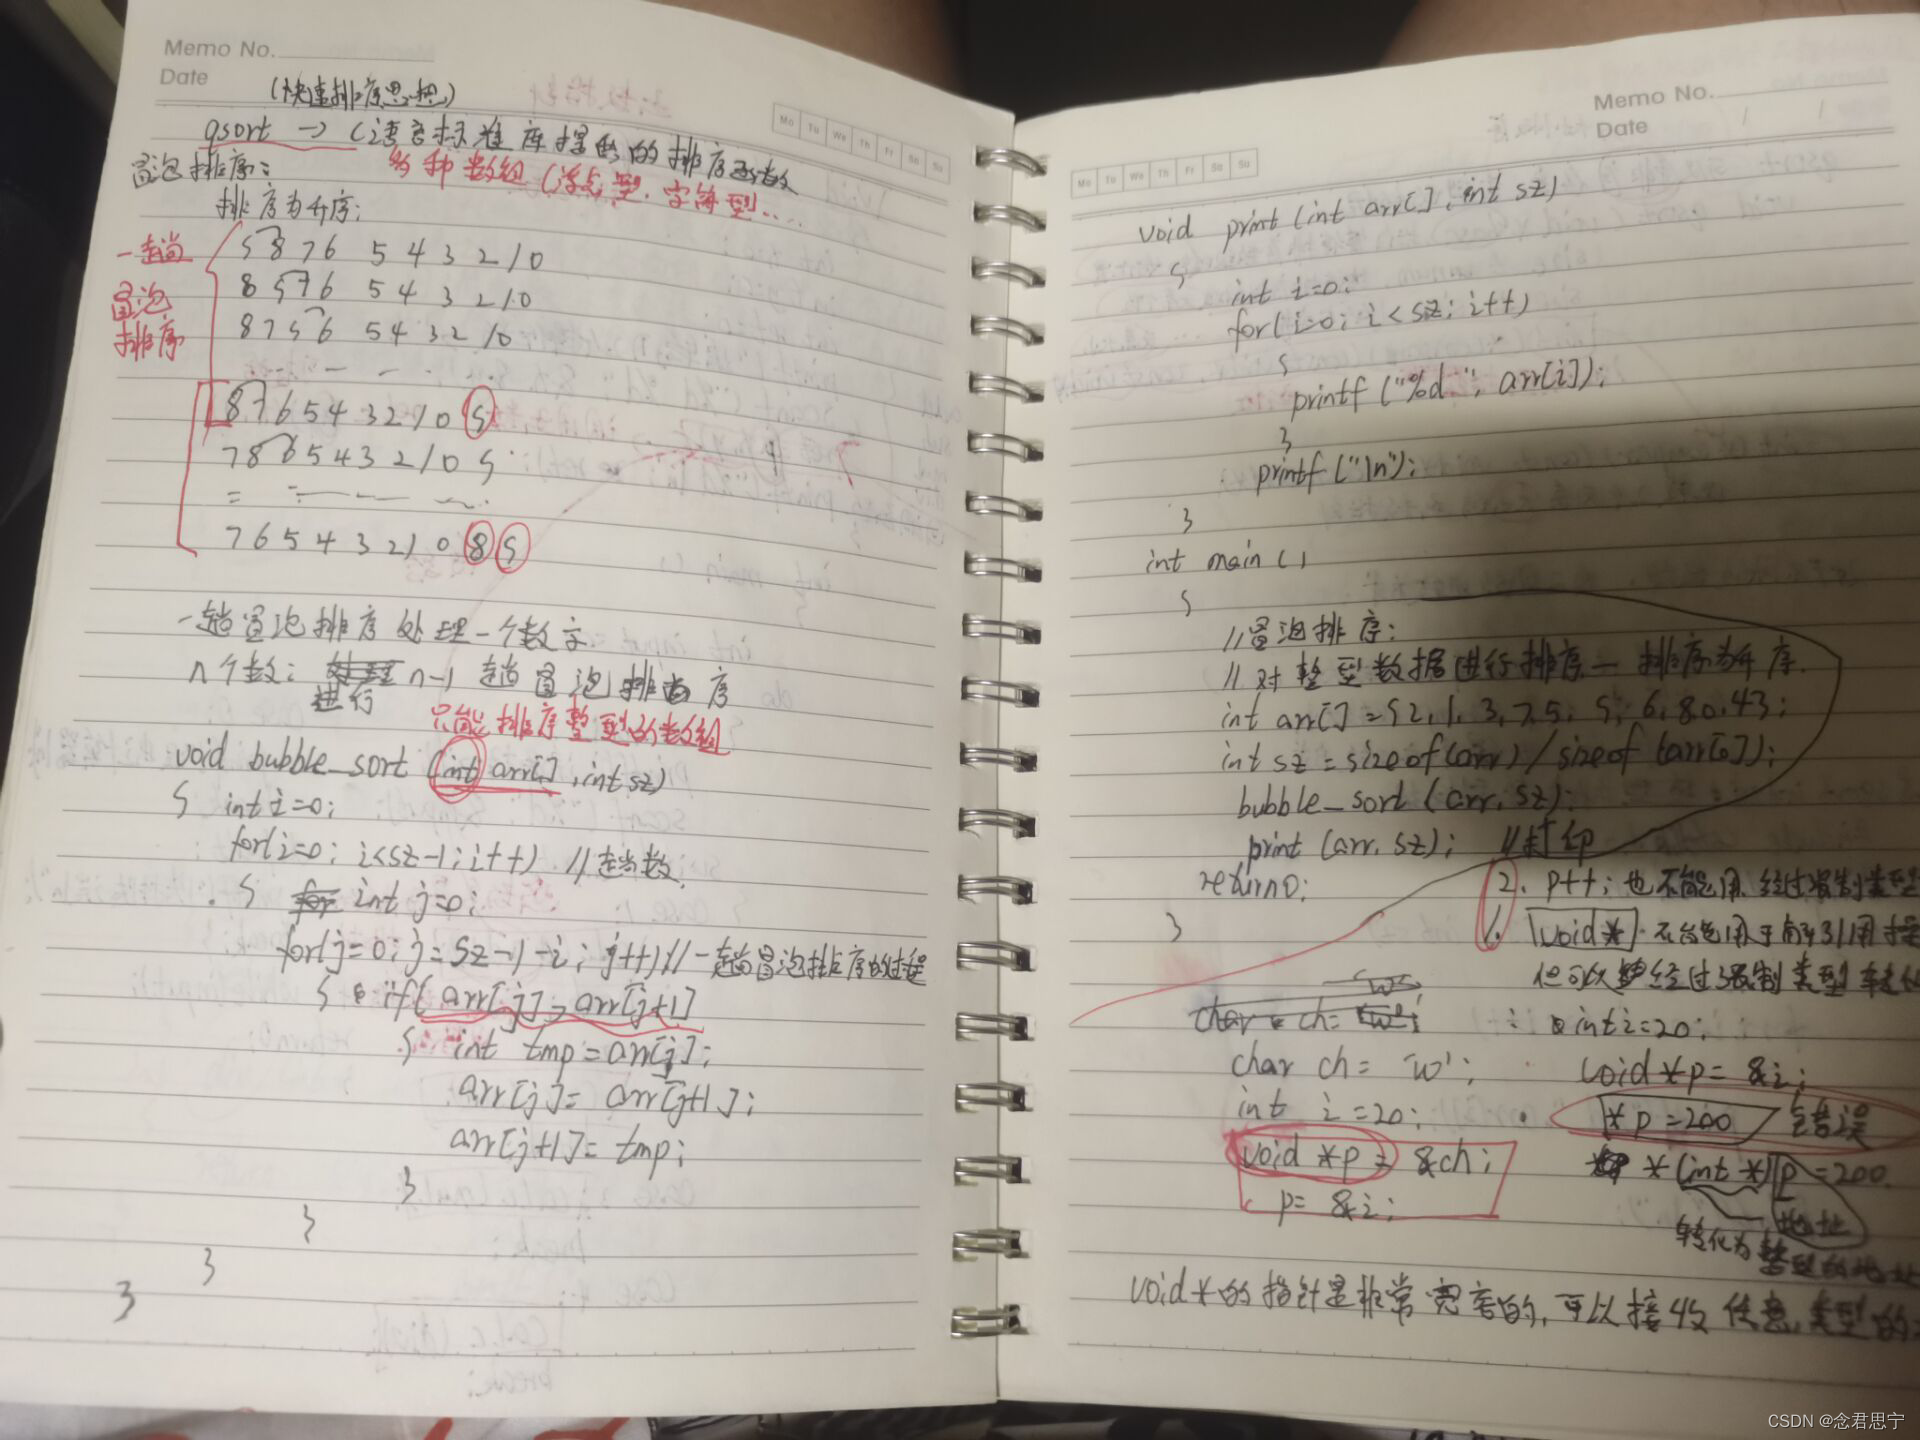 Memo No.
Date
(快速排序思想)
Mo Tu We Th Fr Sa Su
qsort → C语言标准库提供的排序函数
各种数组(浮点型.字符型....
冒泡排序:
排序为升序:
一趟
冒泡
排序
9 8 7 6 5 4 3 2 1 0
8 9 7 6 5 4 3 2 1 0
8 7 9 6 5 4 3 2 1 0
8 7 6 5 4 3 2 1 0 9
7 8 6 5 4 3 2 1 0 9
7 6 5 4 3 2 1 0 8 9
一趟冒泡排序处理一个数字
n个数: n-1趟冒泡排序
进行
只能排序整型的数组
void bubble_sort (int arr[], int sz)
{ int i=0;
for(i=0; i<sz-1; i++) //趟数
{ int j=0;
for(j=0; j=sz-1-i; j++) //一趟冒泡排序的过程
{ if(arr[j]>arr[j+1]
{ int tmp=arr[j];
arr[j]= arr[j+1];
arr[j+1]= tmp;
}
}
}
}
Memo No.
Date
Mo Tu We Th Fr Sa Su
void print (int arr[], int sz)
{
int i=0;
for(i=0; i<sz; i++)
{
printf ("%d ", arr[i]);
}
printf ("\n");
}
int main ()
{
//冒泡排序:
//对整型数据进行排序— 排序为升序.
int arr[] = {2,1,3,7,5,9,6,8,0,43;
int sz = sizeof(arr) / sizeof (arr[0]);
bubble_sort (arr, sz);
print (arr, sz); //打印
return 0;
}
2. p++; 也不能用 经过强制类型
1. void* 不能用于解引用
但可以 经过强制类型转
char ch= 'w';
int i=20;
void *p = &ch;
p= &i;
int i=20;
void *p= &i;
*p=200 错误
*(int *)p =200
地址
转化为整型的地址
void*的指针是非常宽容的, 可以接收任意类型的
CSDN @念君思宁